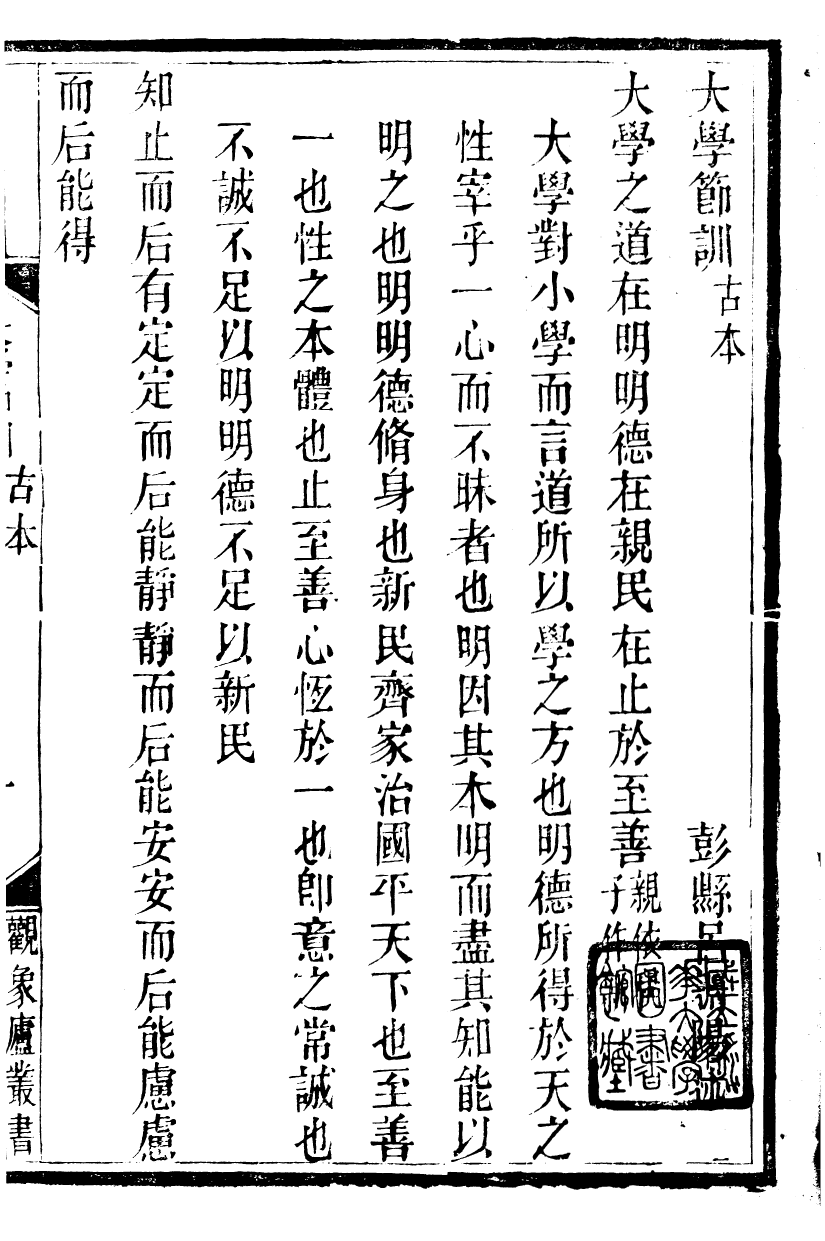 大學節訓古本
彭縣呂
大學之道在明明德在親民在止於至善親依子作
大學對小學而言道所以學之方也明德所得於天之
性宰乎一心而不昧者也明因其本明而盡其知能以
明之也明明德脩身也新民齊家治國平天下也至善
一也性之本體也止至善心恆於一也卽意之常誠也
不誠不足以明明德不足以新民
知止而后有定定而后能靜靜而后能安安而后能慮慮
而后能得
古本
一
觀象廬叢書